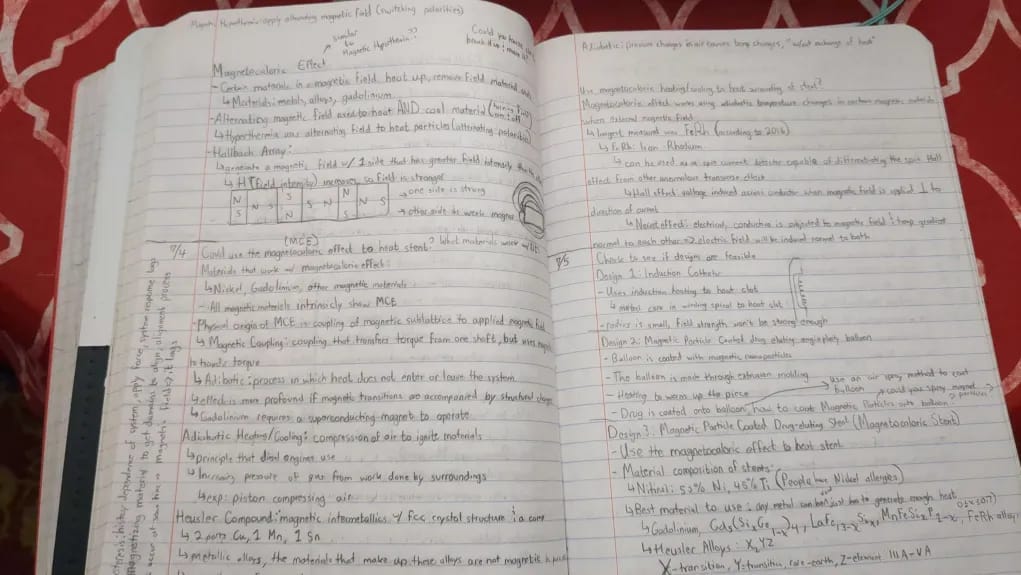 Magnetic Hyperthermia: apply alternating magnetic field (switching polarities)
similar to Magnetic Hyperthermia??
Could you
Magnetocaloric Effect
- Certain materials in a magnetic field heat up, remove field material cools
↳ Materials: metals, alloys, gadolinium
- Alternating magnetic field used to heat AND cool material
↳ Hyperthermia uses alternating field to heat particles (alternating polarities)
- Hallbach Array:
↳ generate a magnetic field w/ 1 side that has greater field intensity than the
↳ H (field intensity) increases, so field is stronger
→ one side is strong
→ other side is weak magnet
N S N S S N S N N S N S
7/4
(MCE)
Could use the magnetocaloric effect to heat stent? What materials work w/
Materials that work w/ magnetocaloric effect:
↳ Nickel, Gadolinium, other magnetic materials
- All magnetic materials intrinsicly show MCE
- Physical origin of MCE is coupling of magnetic sublattice to applied magnetic field
↳ Magnetic Coupling: coupling that transfers torque from one shaft, but uses
to transfer torque
↳ Adibatic: process in which heat does not enter or leave the system
↳ effect is more profound if magnetic transitions are accompanied by structural change
↳ Gadolinium requires a superconducting magnet to operate
Adiabatic Heating/Cooling: compression of air to ignite materials
↳ principle that diesel engines use
↳ Increasing pressure of gas from work done by surroundings
↳ exp: piston compressing air
Heusler Compound: magnetic intermetallics w/ FCC crystal structure & a
↳ 2 parts Cu, 1 Mn, 1 Sn
↳ metallic alloys, the materials that make up these alloys are not magnetic
history dependence of system, apply force, system response lags
magnetizing material to get domains to align, alignment process
magnetic field & it lags
Adibatic: pressure changes in air causes temp changes, "without exchange of heat"
Use magnetocaloric heating/cooling to heat according of stent?
Magnetocaloric effect works using adiabatic temperature changes in certain magnetic materials
when external magnetic field
↳ largest measured was FeRh (according to 2016)
↳ FeRh: Iron-Rhodium
↳ can be used as a spin current detector capable of differentiating the spin Hall
effect from other anomalous transverse effects
↳ Hall effect: voltage induced across conductor when magnetic field is applied ⊥ to
direction of current
↳ Nernst effect: electrical, conductive is subjected to magnetic field & temp gradient
normal to each other => electric field will be induced normal to both
7/5
Check to see if designs are feasible
Design 1: Induction Catheter
- Uses induction heating to heat clot
↳ metal core in winding spiral to heat clot
- radius is small, field strength won't be strong enough
Design 2: Magnetic Particle Coated drug eluting angioplasty balloon
- Balloon is coated with magnetic nanoparticles
- The balloon is made through extrusion molding
→ use an air spray method to coat balloon
- Heating to warm up the piece
↳ could you spray magnet particles
- Drug is coated onto balloon, how to coat Magnetic Particles onto balloon?
Design 3: Magnetic Particle Coated Drug-eluting Stent (Magnetocaloric Stent)
- Use the magnetocaloric effect to heat stent
- Material composition of stents:
↳ Nitinol: 52% Ni, 45% Ti (People have Nickel allergies)
↳ Best material to use: any metal combination to generate enough heat
↳ Gadolinium, Gd5(SixGe1-x)4, LaFe13-xSix, MnFeSixP1-x, FeRh alloy
↳ Heusler Alloys: X2YZ
X-transition, Y-transition, rare-earth, Z-element IIIA-VA